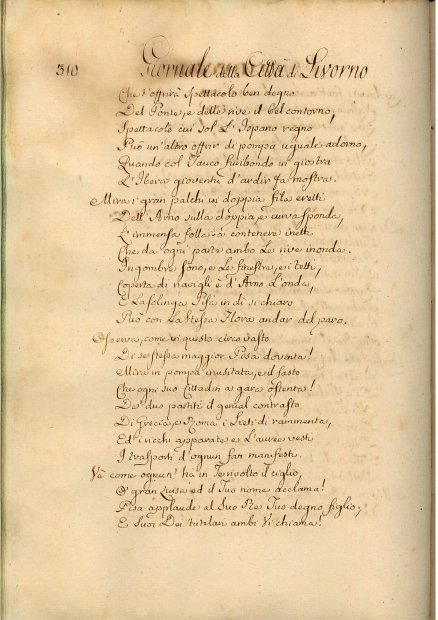 310 Giornale della Città di Livorno
Che t'offrirà spettacolo ben degno
Del Ponte, e delle rive il bel contorno,
Spettacolo cui sol L'Ispano regno
Può un'altro offrir di pompa uguale adorno,
Quando col Tauro furibondo in giostra
L'Ibera gioventù d'ardir fa mostra.
Mira i gran palchi in doppia fila eretti
Dell'Arno sulla doppia, e curva sponda,
L'immensa folla a contenere inetti
Che da ogni parte ambo le rive inonda.
Ingombre sono, e Le finestre, e i tetti,
Coperta di navigli è d'Arno L'onda,
E La solinga Pisa in dì sì chiaro
Può con La stessa Flora andar del paro.
Osserva, come in questo circo vasto
Di se stessa maggior Pisa doventa!
Mira in pompa inusitata, e il fasto
Che ogni suo Cittadin a gara ostenta!
De' due partiti il genial contrasto
Di Grecia, e Roma i Lieti dì rammenta,
Ed i ricchi apparati e L'auree vesti
I trasporti d'ognun fan manifesti.
Ve' come ognun' ha in Te rivolto il ciglio,
O gran Luisa ed il Tuo nome acclama!
Pisa applaude al Suo Re Tuo degno figlio,
E Suoi Dei tutelari ambi Vi chiama!